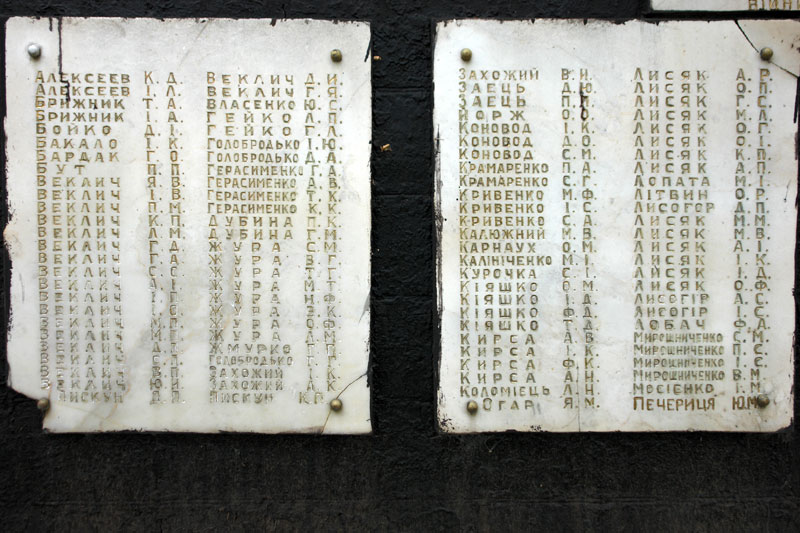 АЛЕКСЕЕВ К.Д. ВЕКЛИЧ Д.И.
АЛЕКСЕЕВ І.Л. ВЕКЛИЧ Г.Я.
БРИЖНИК Т.А. ВЛАСЕНКО Ю.С.
БРИЖНИК І.А. ГЕЙКО Л.П.
БОЙКО Д.І. ГЕЙКО Г.Л.
БАКАЛО І.К. ГОЛОБРОДЬКО І.Ю.
БАРДАК Г.О. ГОЛОБРОДЬКО Д.А.
БУТ П.П. ГЕРАСИМЕНКО Г.А.
ВЕКЛИЧ Я.В. ГЕРАСИМЕНКО А.В.
ВЕКЛИЧ І.В. ГЕРАСИМЕНКО Т.К.
ВЕКЛИЧ П.М. ГЕРАСИМЕНКО К.К.
ВЕКЛИЧ К.П. ДУБИНА П.К.
ВЕКЛИЧ Л.М. ДУБИНА Г.М.
ВЕКЛИЧ Г.Д. ЖУРА С.М.
ВЕКЛИЧ Г.А. ЖУРА В.Г.
ВЕКЛИЧ С.С. ЖУРА Т.Г.
ВЕКЛИЧ ЖУРА М.Т.
ВЕКЛИЧ ЖУРА Н.Ф.
ВЕКЛИЧ ЖУРА
ВЕКЛИЧ ЖУРА О.Ф.
ВЕКЛИЧ ЖУРА
ВЕКЛИЧ ЖМУРКО
ВЕКЛИЧ ГОЛОБРОДЬКО
ВЕКЛИЧ ЗАХОЖИЙ
ВЕКЛИЧ Ю.И. ЗАХОЖИЙ А.К.
ПИСКУН Д.П. ПИСКУН К.Р.
ЗАХОЖИЙ В.Н. ЛИСЯК А.Р.
ЗАЕЦЬ Д.Ю. ЛИСЯК О.П.
ЗАЕЦЬ П.П. ЛИСЯК Г.С.
ЙОРЖ О.О. ЛИСЯК М.Л.
КОНОВОД І.К. ЛИСЯК О.Г.
КОНОВОД Д.О. ЛИСЯК О.І.
КОНОВОД С.М. ЛИСЯК К.П.
КРАМАРЕНКО П.А. ЛИСЯК А.П.
КРАМАРЕНКО С.Г. ЛОПАТА М.І.
КРИВЕНКО М.Ф. ЛІТВИН О.Р.
КРИВЕНКО І.С. ЛИСОГОР Д.П.
КРИВЕНКО С.Д. ЛИСЯК М.М.
КАЛЮЖНИЙ М.В. ЛИСЯК М.В.
КАРНАУХ О.М. ЛИСЯК А.І.
КАЛІНІЧЕНКО М.І. ЛИСЯК І.К.
КУРОЧКА С.І. ЛИСЯК І.Д.
КІЯШКО О.М. ЛИСЯК О.Ф.
КІЯШКО І.Д. ЛИСОГІР А.С.
КІЯШКО Ф.Д. ЛИСОГІР І.С.
КІЯШКО Т.Д. ЛОБАЧ Ф.А.
КИРСА А.В. МИРОШНИЧЕНКО С.М.
КИРСА І.К. МИРОШНИЧЕНКО П.С.
КИРСА Ф.К. МИРОШНИЧЕНКО І.С.
КИРСА А.Н. МИРОШНИЧЕНКО В.М.
КОЛОМІЄЦЬ Л.Н. МОСІЄНКО І.М.
ОГАР Я.М. ПЕЧЕРИЦЯ Ю.М.